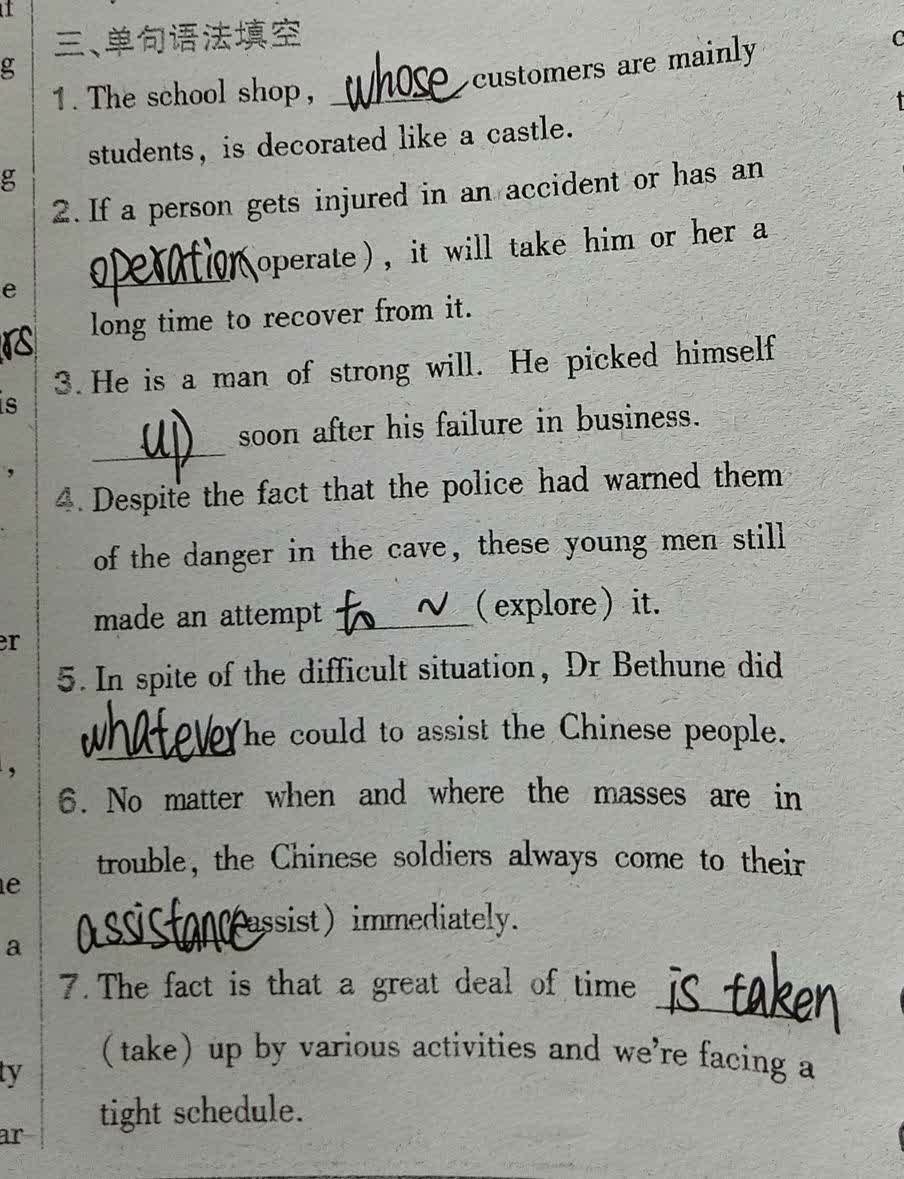 三、单句语法填空
1. The school shop, whose customers are mainly
students, is decorated like a castle.
2. If a person gets injured in an accident or has an
operation (operate), it will take him or her a
long time to recover from it.
3. He is a man of strong will. He picked himself
up soon after his failure in business.
4. Despite the fact that the police had warned them
of the danger in the cave, these young men still
made an attempt to ~ (explore) it.
5. In spite of the difficult situation, Dr Bethune did
whatever he could to assist the Chinese people.
6. No matter when and where the masses are in
trouble, the Chinese soldiers always come to their
assistance (assist) immediately.
7. The fact is that a great deal of time is taken
(take) up by various activities and we're facing a
tight schedule.